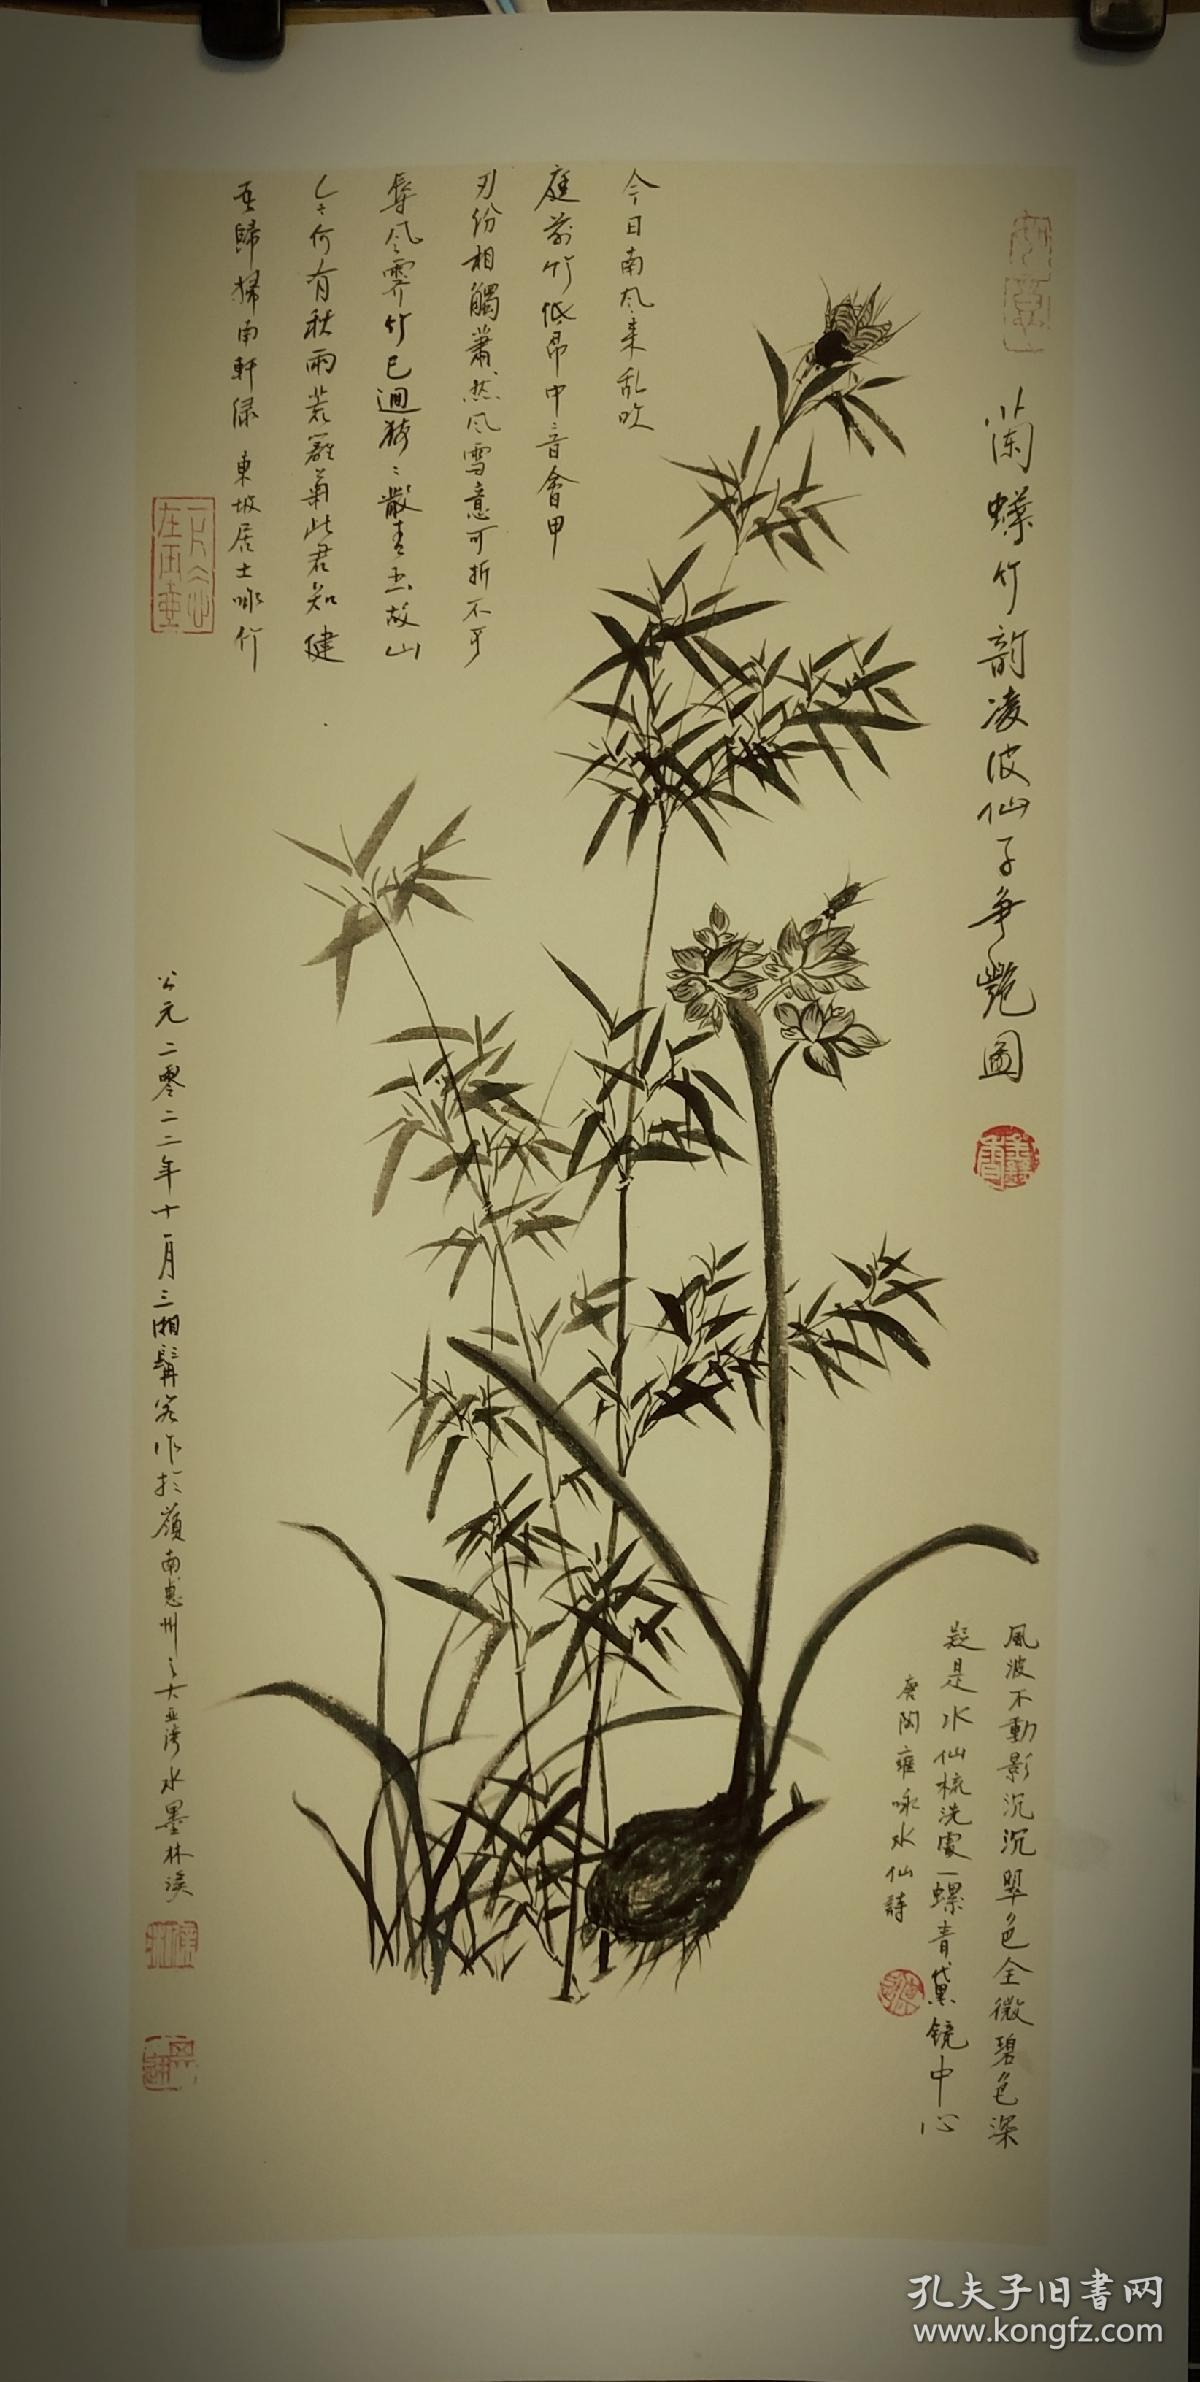 蘭蝶竹韵凌波仙子争艷圖
今日南风来乱吹
庭前竹低昂中音會甲
刃纷相觸蕭然风雪意可折不可
辱风霁竹已迴猗:散青玉故山
今何有秋雨荒籬菊此君知健
否歸掃南軒绿 東坡居士咏竹
公元二零二二年十一月三湘髯客作於嶺南惠州之大亚湾水墨林溪
風波不動影沉沉翠色全微碧色深
疑是水仙梳洗處一螺青黛镜中心
唐 雍 咏水仙詩
孔夫子旧书网
www.kongfz.com